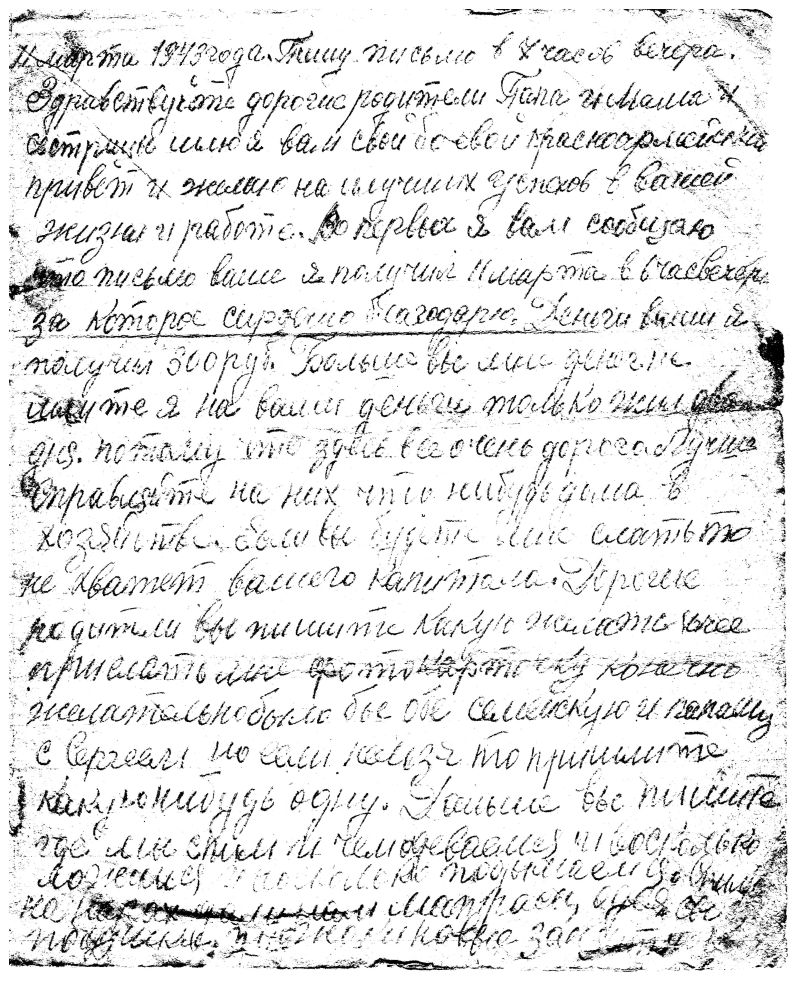 11 марта 1943 года. Пишу письмо в 7 часов вечера.
Здравствуйте дорогие родители Папа и Мама и
шлю я вам свой боевой красноармейский
привет и желаю наилучших успехов в вашей
жизни и работе. Во первых я вам сообщаю
что письмо ваше я получил 11 марта в 6 час вечера
за которое сердечно благодарю. Деньги ваши я
получил 300 руб. Больше вы мне денег не
шлите я на ваши деньги только жил два
дня. потому что здесь все очень дорого Лучше
справляйте на них что нибудь дома в
хозяйстве. если вы будете мне слать то
не хватет вашего капитала. Дорогие
родители вы пишите какую желательнее
прислать мне фотокарточку конечно
желательно было бы обе семейскую и папашу
с Сергеем но если нельзя то пришлите
какую нибудь одну. Дальше вы пишите
где мы спим и чем одеваемся и во сколько
ложимся и во сколько подымаемся. Спим
на нарах матрасы, одеялы
подушки.